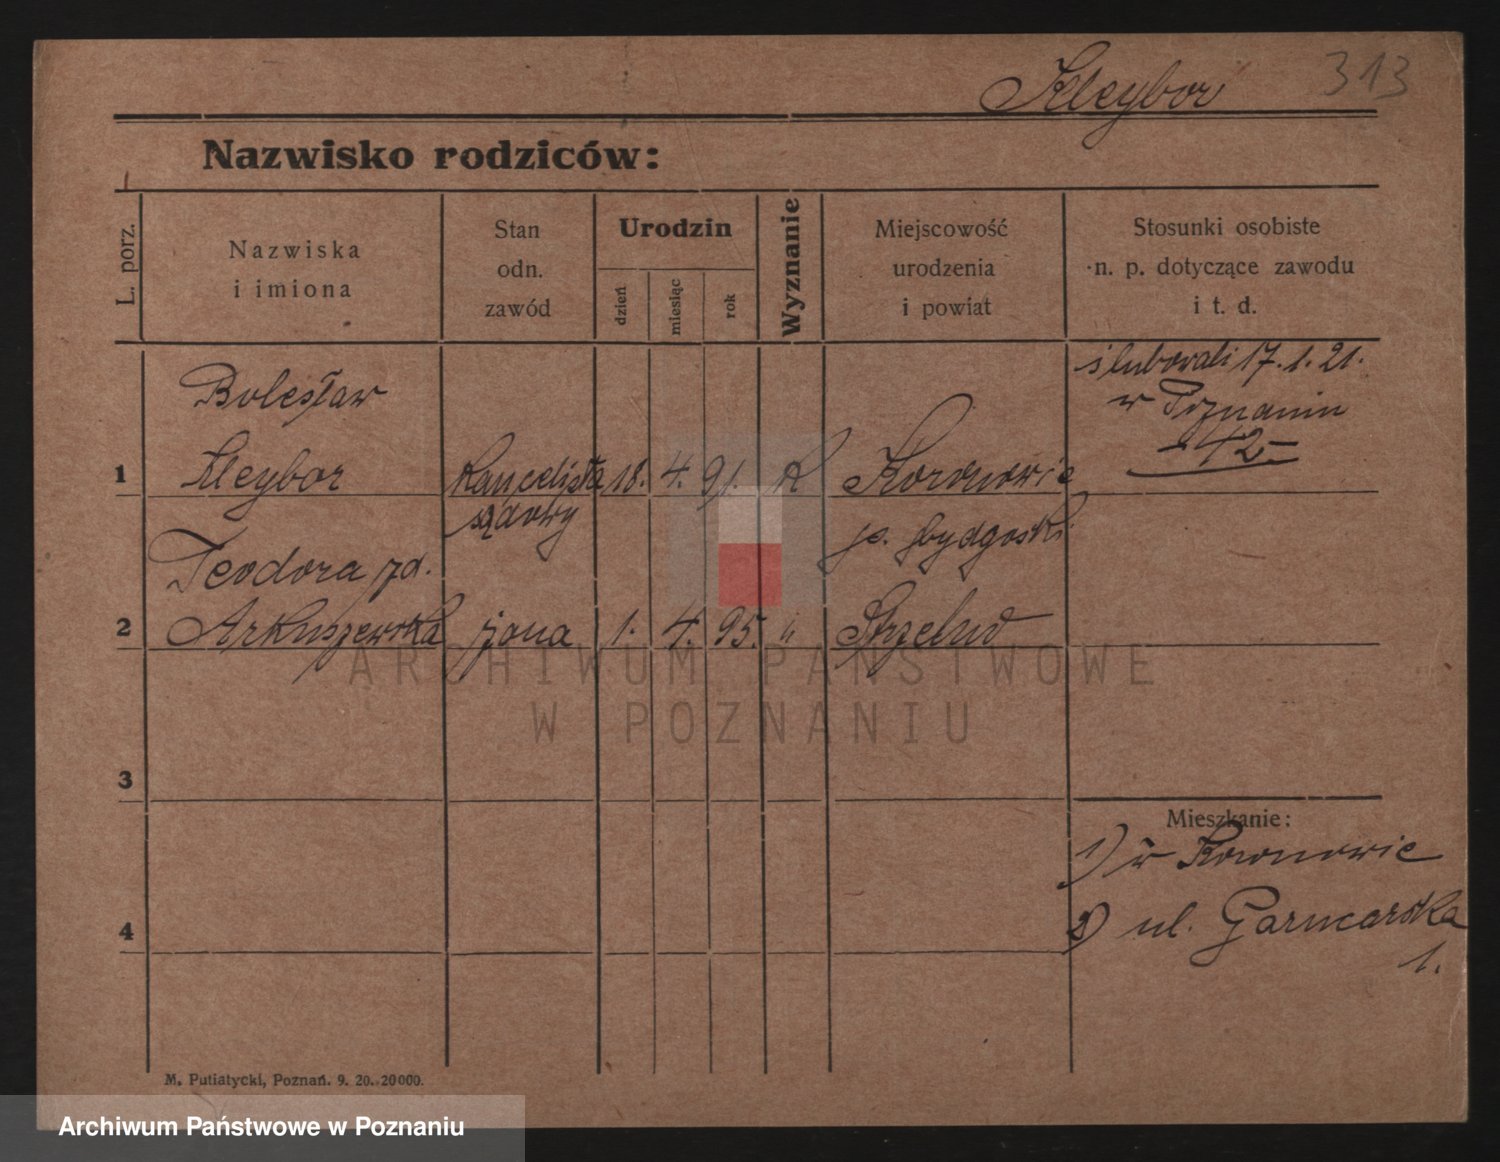 Kleybor 313
Nazwisko rodziców:
L. porz.
Nazwiska
i imiona
Stan
odn.
zawód
Urodzin
dzień
miesiąc
rok
Wyznanie
Miejscowość
urodzenia
i powiat
Stosunki osobiste
n. p. dotyczące zawodu
i t. d.
ślubowali 17.1.21.
w Poznaniu
-42-
Bolesław
1 Kleybor kancelista 18. 4. 91. K Koronowie
sądowy p. bydgoski
Teodora zd.
2 Arkuszewska żona 1. 4. 95. " Strzelno
ARCHIWUM PAŃSTWOWE
W POZNANIU
3
Mieszkanie:
1) w Koronowie
4 2) ul. Garncarska
1.
M. Putiatycki, Poznań. 9. 20. 20000.
Archiwum Państwowe w Poznaniu